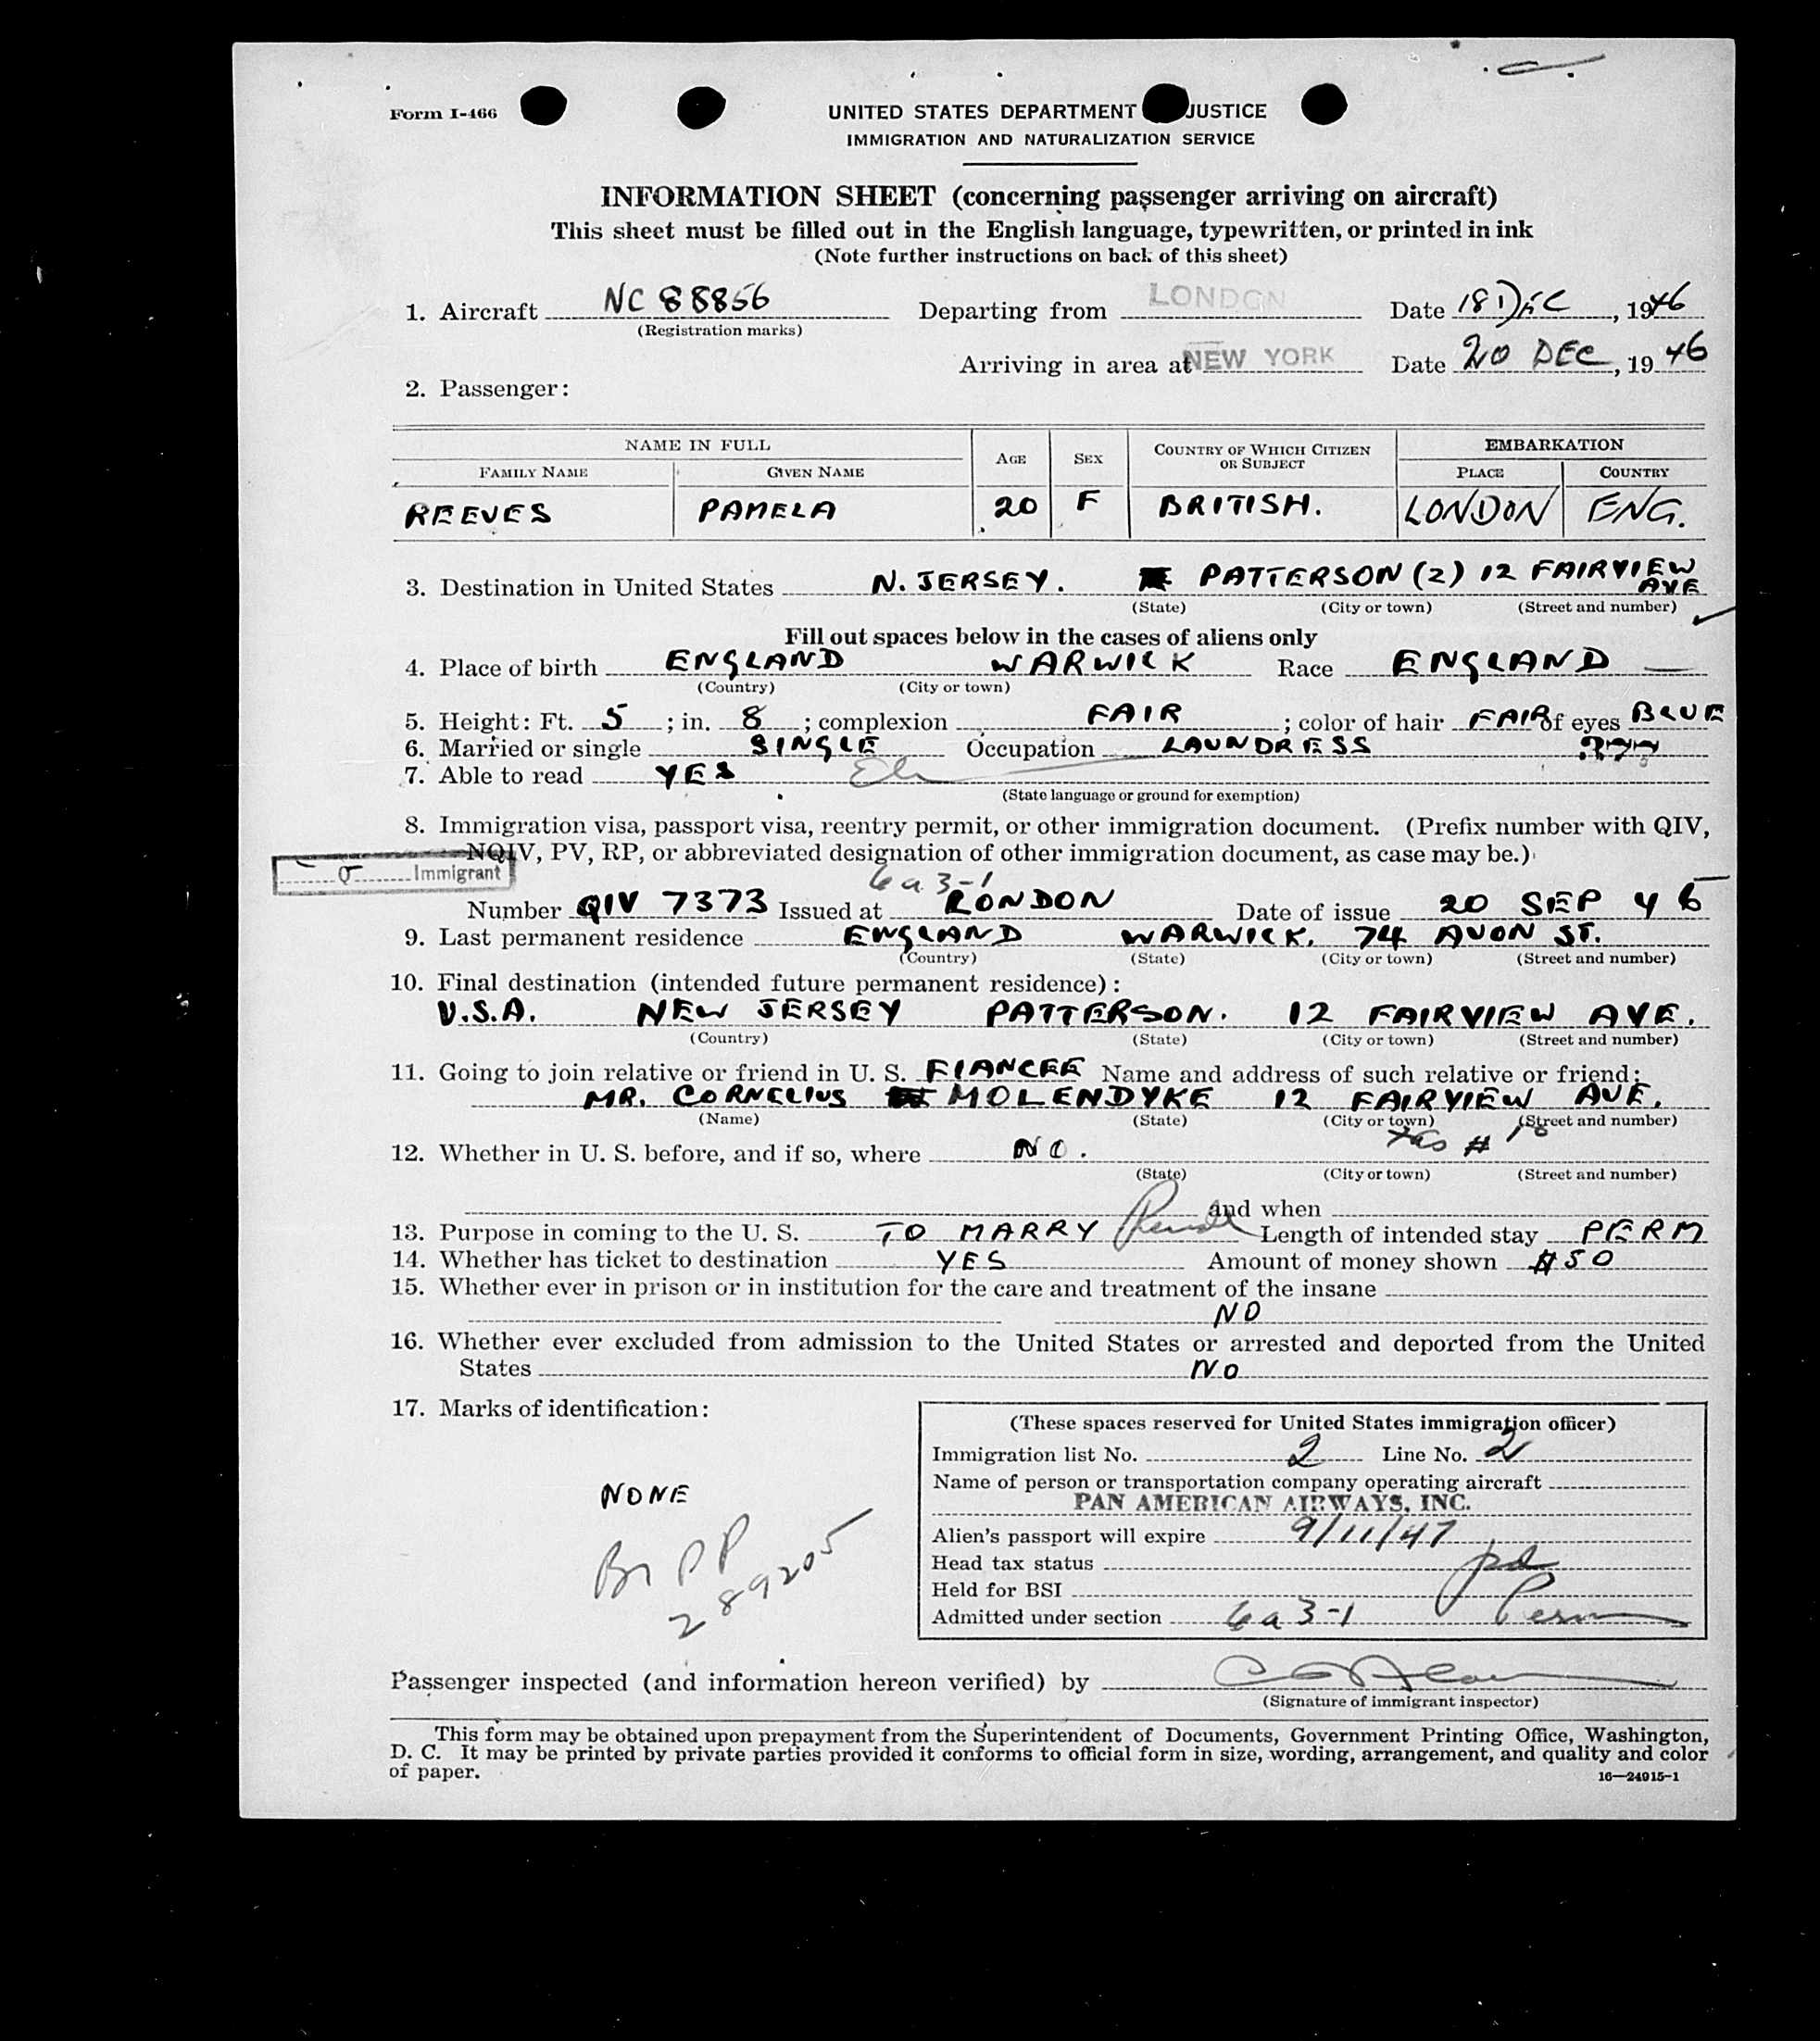 Form I-466
UNITED STATES DEPARTMENT JUSTICE
IMMIGRATION AND NATURALIZATION SERVICE
INFORMATION SHEET (concerning passenger arriving on aircraft)
This sheet must be filled out in the English language, typewritten, or printed in ink
(Note further instructions on back of this sheet)
1. Aircraft NC 88856 Departing from LONDON Date 18 DEC, 1946
(Registration marks)
Arriving in area at NEW YORK Date 20 DEC, 1946
2. Passenger:
NAME IN FULL AGE SEX COUNTRY OF WHICH CITIZEN OR SUBJECT EMBARKATION
FAMILY NAME GIVEN NAME PLACE COUNTRY
REEVES PAMELA 20 F BRITISH. LONDON ENG.
3. Destination in United States N. JERSEY. PATTERSON (2) 12 FAIRVIEW AVE
(State) (City or town) (Street and number)
Fill out spaces below in the cases of aliens only
4. Place of birth ENGLAND WARWICK Race ENGLAND
(Country) (City or town)
5. Height: Ft. 5; in. 8; complexion FAIR; color of hair FAIR of eyes BLUE
6. Married or single SINGLE Occupation LAUNDRESS
7. Able to read YES
(State language or ground for exemption)
8. Immigration visa, passport visa, reentry permit, or other immigration document. (Prefix number with QIV,
NQIV, PV, RP, or abbreviated designation of other immigration document, as case may be.)
Immigrant
6a3-1
Number QIV 7373 Issued at LONDON Date of issue 20 SEP 46
9. Last permanent residence ENGLAND WARWICK. 74 AVON ST.
(Country) (State) (City or town) (Street and number)
10. Final destination (intended future permanent residence):
U.S.A. NEW JERSEY PATTERSON. 12 FAIRVIEW AVE.
(Country) (State) (City or town) (Street and number)
11. Going to join relative or friend in U. S. FIANCEE Name and address of such relative or friend:
MR. CORNELIUS MOLENDYKE 12 FAIRVIEW AVE.
(Name) (State) (City or town) (Street and number)
12. Whether in U. S. before, and if so, where NO.
(State) (City or town) (Street and number)
and when
13. Purpose in coming to the U. S. TO MARRY Length of intended stay PERM
14. Whether has ticket to destination YES Amount of money shown $50
15. Whether ever in prison or in institution for the care and treatment of the insane
NO
16. Whether ever excluded from admission to the United States or arrested and deported from the United
States NO
17. Marks of identification:
NONE
Br PP
289205
(These spaces reserved for United States immigration officer)
Immigration list No. 2 Line No. 2
Name of person or transportation company operating aircraft
PAN AMERICAN AIRWAYS, INC.
Alien's passport will expire 9/11/47
Head tax status pd
Held for BSI
Admitted under section 6a3-1 Perm
Passenger inspected (and information hereon verified) by
(Signature of immigrant inspector)
This form may be obtained upon prepayment from the Superintendent of Documents, Government Printing Office, Washington,
D. C. It may be printed by private parties provided it conforms to official form in size, wording, arrangement, and quality and color
of paper.
16—24915-1